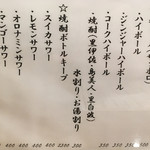 ・ハイボール
・ジンジャーハイボール
・コークハイボール
・焼酎(黒伊佐・島美人・黒白波)
水割り・お湯割り
☆焼酎ボトルキープ
・スイカサワー
・レモンサワー
・オロナミンサワー
・マンゴーサワー
350
350
300
2200
400
400
400
400